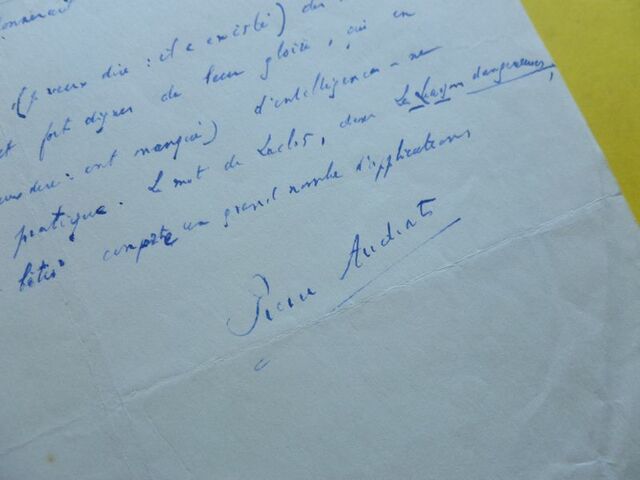 donnerait
(je veux dire : il a existé) des
et fort dignes de leur gloire, qui en
veux dire : ont manqué) d'intelligence – ne
pratique. Le mot de Laclos, dans Les Liaisons dangereuses,
compte un grand nombre d'applications
Pierre Audiat